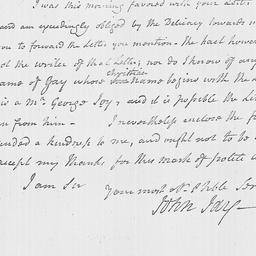 I was this morning favored with your Letter
and am exceedingly obliged by the Delicacy towards m
you to forward the Letter you mention – The hast howev
of the writer of that Letter; nor do I know of any
christian
ame of Jay whose name begins with the
is a Mr. George Jay, and it is possible the Let
en from him – I nevertheless enclose the f
nded a kindness to me, and ought not to be
accept my thanks for this mark of polite a
I am Sir your most obt. & hble Ser
John Jay –